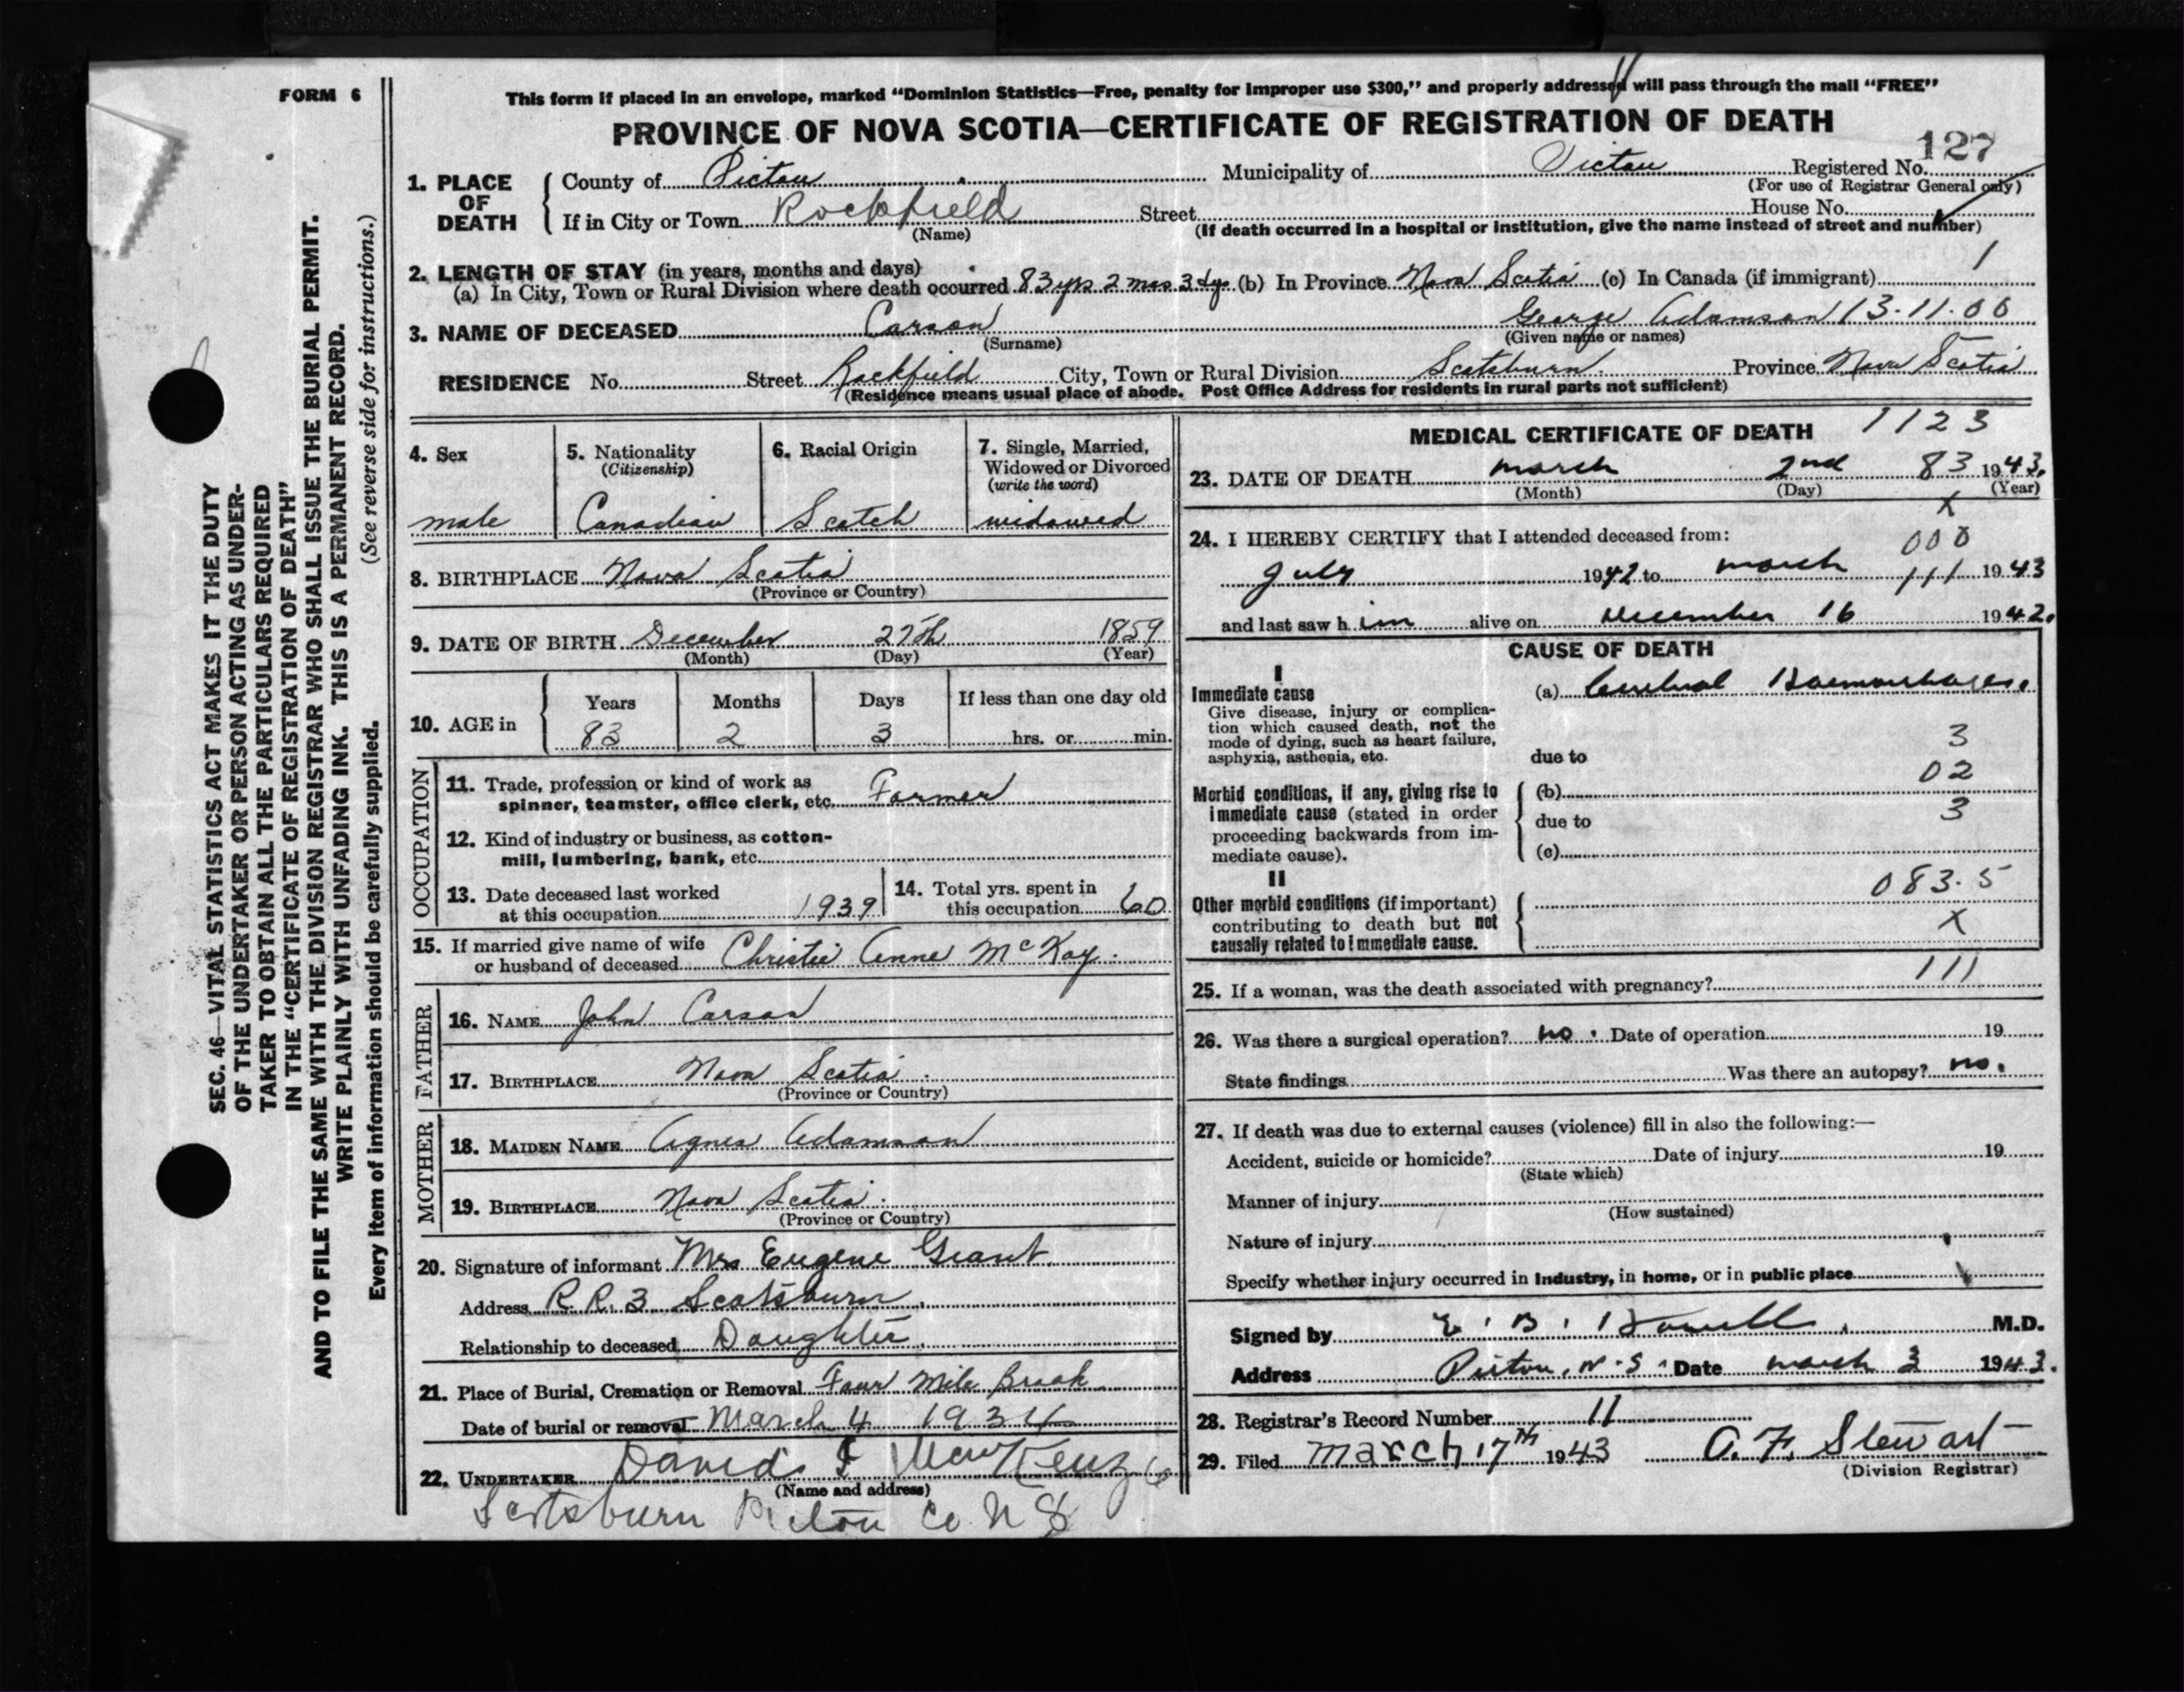 FORM 6
This form if placed in an envelope, marked "Dominion Statistics—Free, penalty for improper use $300," and properly addressed will pass through the mail "FREE"
PROVINCE OF NOVA SCOTIA—CERTIFICATE OF REGISTRATION OF DEATH
127
1. PLACE OF DEATH
County of Pictou Municipality of Pictou Registered No.
(For use of Registrar General only)
If in City or Town Rockfield Street House No.
(Name) (If death occurred in a hospital or institution, give the name instead of street and number)
2. LENGTH OF STAY (in years, months and days)
(a) In City, Town or Rural Division where death occurred 83 yrs 2 mos 3 dys (b) In Province Nova Scotia (c) In Canada (if immigrant) 1
3. NAME OF DECEASED Carson George Adamson 13.11.00
(Surname) (Given name or names)
RESIDENCE No. Street Rockfield City, Town or Rural Division Scotsburn Province Nova Scotia
(Residence means usual place of abode. Post Office Address for residents in rural parts not sufficient)
4. Sex 5. Nationality (Citizenship) 6. Racial Origin 7. Single, Married, Widowed or Divorced (write the word)
male Canadian Scotch widowed
8. BIRTHPLACE Nova Scotia
(Province or Country)
9. DATE OF BIRTH December 27th 1859
(Month) (Day) (Year)
10. AGE in Years Months Days If less than one day old
83 2 3 hrs. or min.
OCCUPATION
11. Trade, profession or kind of work as
spinner, teamster, office clerk, etc. Farmer
12. Kind of industry or business, as cotton-
mill, lumbering, bank, etc.
13. Date deceased last worked
at this occupation 1939
14. Total yrs. spent in
this occupation 60
15. If married give name of wife
or husband of deceased Christie Anne McKay.
FATHER
16. NAME John Carson
17. BIRTHPLACE Nova Scotia.
(Province or Country)
MOTHER
18. MAIDEN NAME Agnes Adamson
19. BIRTHPLACE Nova Scotia.
(Province or Country)
20. Signature of informant Mrs Eugene Grant.
Address R. R. 3 Scotsburn.
Relationship to deceased Daughter.
21. Place of Burial, Cremation or Removal Four Mile Brook
Date of burial or removal March 4 1934
22. UNDERTAKER David
(Name and address)
Scotsburn Pictou Co. N S
MEDICAL CERTIFICATE OF DEATH 1123
23. DATE OF DEATH march 2nd 83 1943.
(Month) (Day) (Year)
X
24. I HEREBY CERTIFY that I attended deceased from:
000
July 1942 to march 111 1943
and last saw h im alive on December 16 1942.
CAUSE OF DEATH
I
Immediate cause
Give disease, injury or complica-
tion which caused death, not the
mode of dying, such as heart failure,
asphyxia, asthenia, etc.
(a) Cerebral Haemorrhage.
3
due to
02
Morbid conditions, if any, giving rise to
immediate cause (stated in order
proceeding backwards from im-
mediate cause).
(b)
3
due to
(c)
II
Other morbid conditions (if important)
contributing to death but not
causally related to immediate cause.
083.5
X
111
25. If a woman, was the death associated with pregnancy?
26. Was there a surgical operation? no. Date of operation 19
State findings Was there an autopsy? no.
27. If death was due to external causes (violence) fill in also the following:—
Accident, suicide or homicide? Date of injury 19
(State which)
Manner of injury
(How sustained)
Nature of injury
Specify whether injury occurred in Industry, in home, or in public place
Signed by E. B. M.D.
Address Pictou, N.S. Date march 3 1943.
28. Registrar's Record Number 11
29. Filed March 17th 1943 A. F. Stewart
(Division Registrar)
SEC. 46—VITAL STATISTICS ACT MAKES IT THE DUTY
OF THE UNDERTAKER OR PERSON ACTING AS UNDER-
TAKER TO OBTAIN ALL THE PARTICULARS REQUIRED
IN THE "CERTIFICATE OF REGISTRATION OF DEATH"
AND TO FILE THE SAME WITH THE DIVISION REGISTRAR WHO SHALL ISSUE THE BURIAL PERMIT.
WRITE PLAINLY WITH UNFADING INK. THIS IS A PERMANENT RECORD.
Every item of information should be carefully supplied. (See reverse side for instructions.)